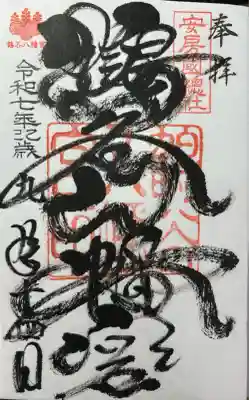 奉拝
安房國總社
鶴谷八幡宮
令和七年乙巳歳
九月二十四日
鶴谷八幡宮